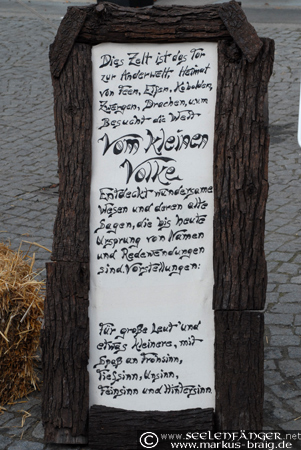 Dies Zelt ist das Tor
zur Anderwelt Heimat
von Feen, Elfen, Kobolden,
Zwergen, Drachen, u.v.m
Besucht die Welt
Vom kleinen
Volke
Entdeckt wundersame
Wesen und deren alte
Sagen, die bis heute
Ursprung von Namen
und Redewendungen
sind. Vorstellungen:
für große Leut' und
etwas kleinere, mit
Spaß an Frohsinn,
Tiefsinn, Unsinn,
Feinsinn und Hintersinn
© www.SEELENFÄNGER.net
www.markus-braig.de